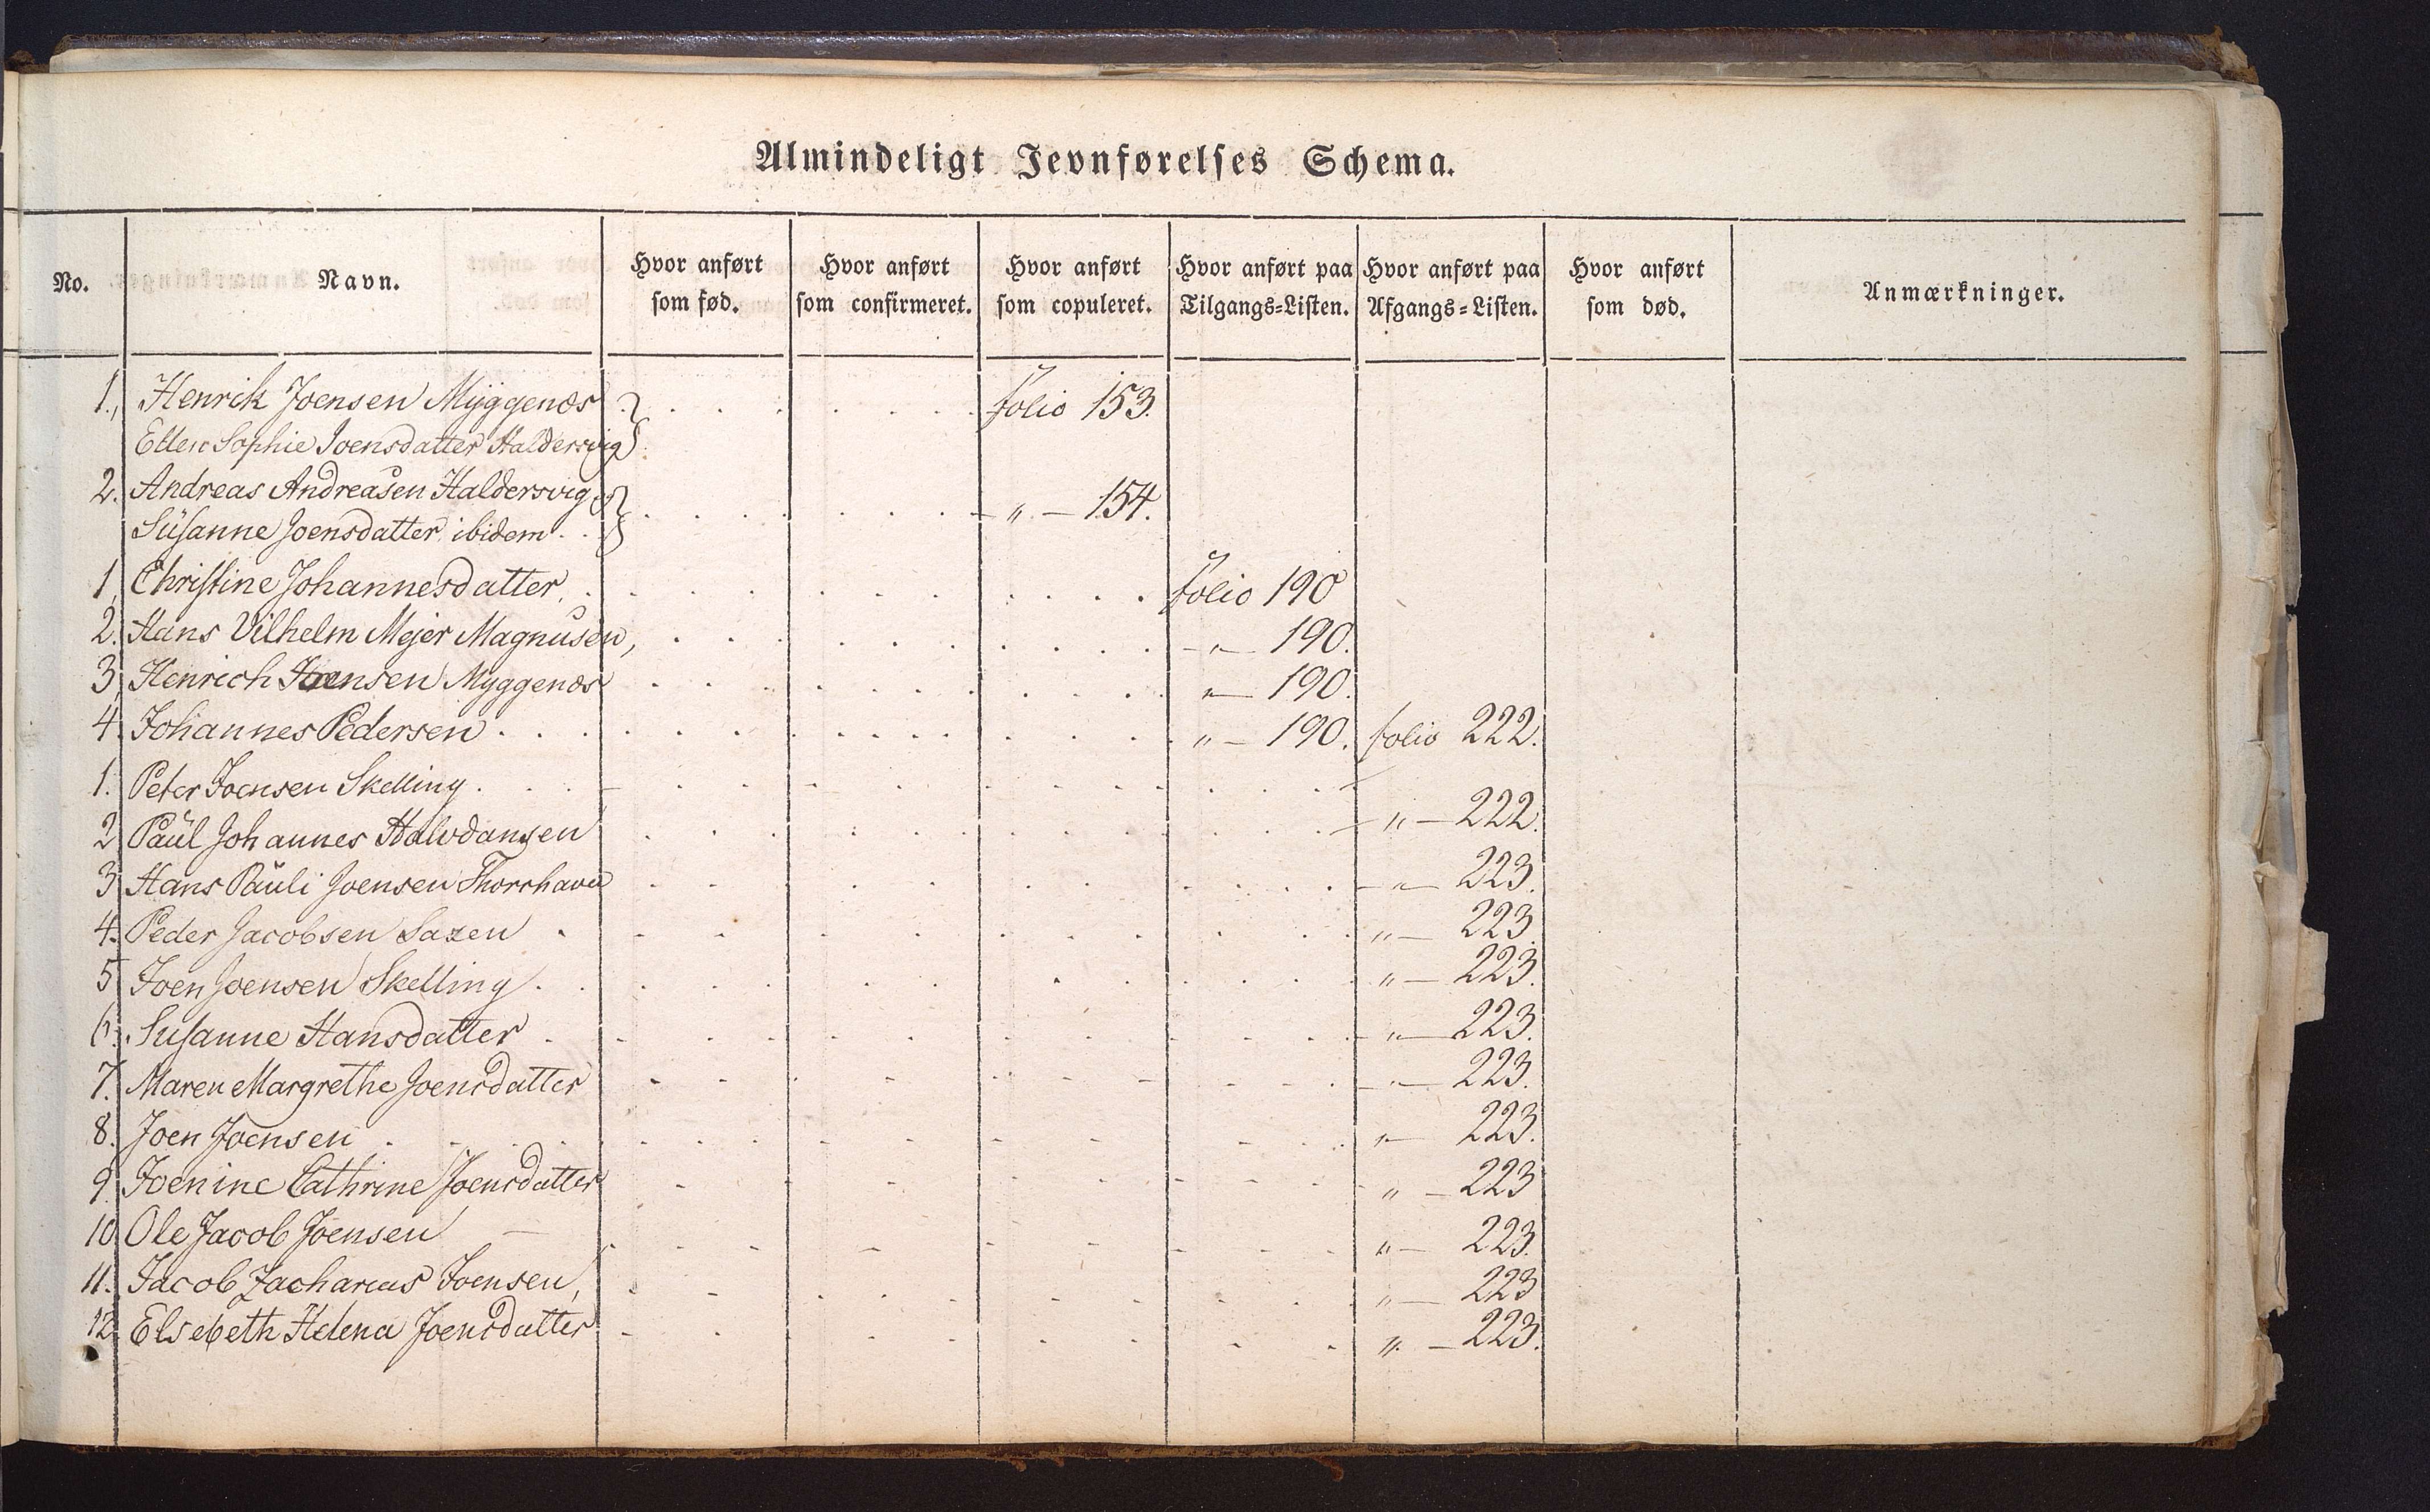 Almindeligt Jevnførelses Schema.
No. Navn. Hvor anført som fød. Hvor anført som confirmeret. Hvor anført som copuleret. Hvor anført paa Tilgangs=Listen. Hvor anført paa Afgangs=Listen. Hvor anført som død. Anmærkninger.
1., Henrik Joensen Myggenæs folio 153.
Ellen Sophie Joensdatter Haldersvig
2. Andreas Andreasen Haldersvig og " — 154.
Susanne Joensdatter ibidem
1, Christine Johannesdatter, folio 190
2. Hans Vilhelm Mejer Magnusen, " 190.
3, Henrich Joensen Myggenæs " 190.
4. Johannes Pedersen " — 190. folio 222.
1. Peter Joensen Skelling
2 Paul Johannes Halvdansen " — 222.
3 Hans Pauli Joensen Thorshavn " — 223.
4. Peder Jacobsen Saxen " — 223.
5 Joen Joensen Skelling " — 223.
6. Susanne Hansdatter " — 223.
7. Maren Margrethe Joensdatter " — 223.
8. Joen Joensen " — 223.
9. Joenine Cathrine Joensdatter " — 223
10. Ole Jacob Joensen " — 223.
11. Jacob Zacharias Joensen, " — 223
12. Elsebeth Helena Joensdatter " — 223.